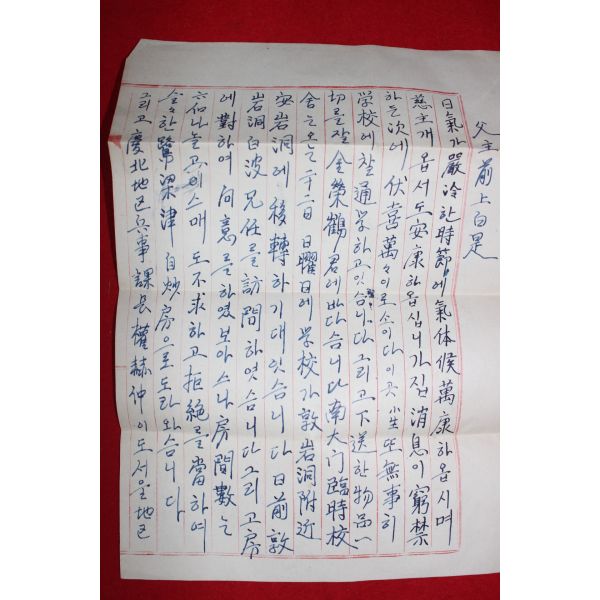 父主前上白是
日氣가嚴冷한時節에氣体候萬康하옵시며
慈主개옵서도安康하옵십니가집消息이窮禁
하든次에伏喜萬々이로소이다이곳小生또無事히
学校에잘通学하고잇슴니다그리고下送한物品一
切르잘金榮鶴君에바다슴니다南大门臨時校
舍는오는二十二日日曜日에学校가敦岩洞附近
安岩洞에移轉하기대잇슴니다日前敦
岩洞白波兄任를訪問하엿슴니다그리고房
에對하여向意를하였보아스나房間數는
나놀고이스매도不求하고拒絶를當하여
한鷺梁津自炒房으로도라와슴니다
그리고慶北地区兵事課長權赫仲이도서울地区